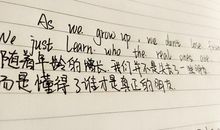 As we grow up, we don't lose frien
We just learn who the real ones are.
随着年龄的增长,我们并不是失去了一些朋友
而是懂得了谁才是真正的朋友.